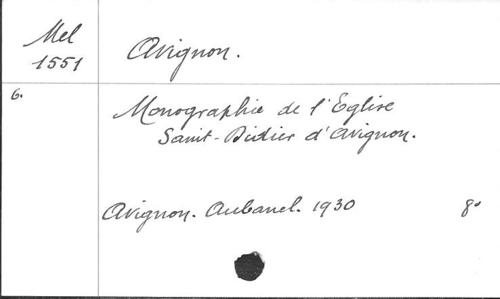 Mel
1551
Avignon.
6.
Monographie de l'Eglise
Saint-Didier d'Avignon.
Avignon. Aubanel. 1930 8°